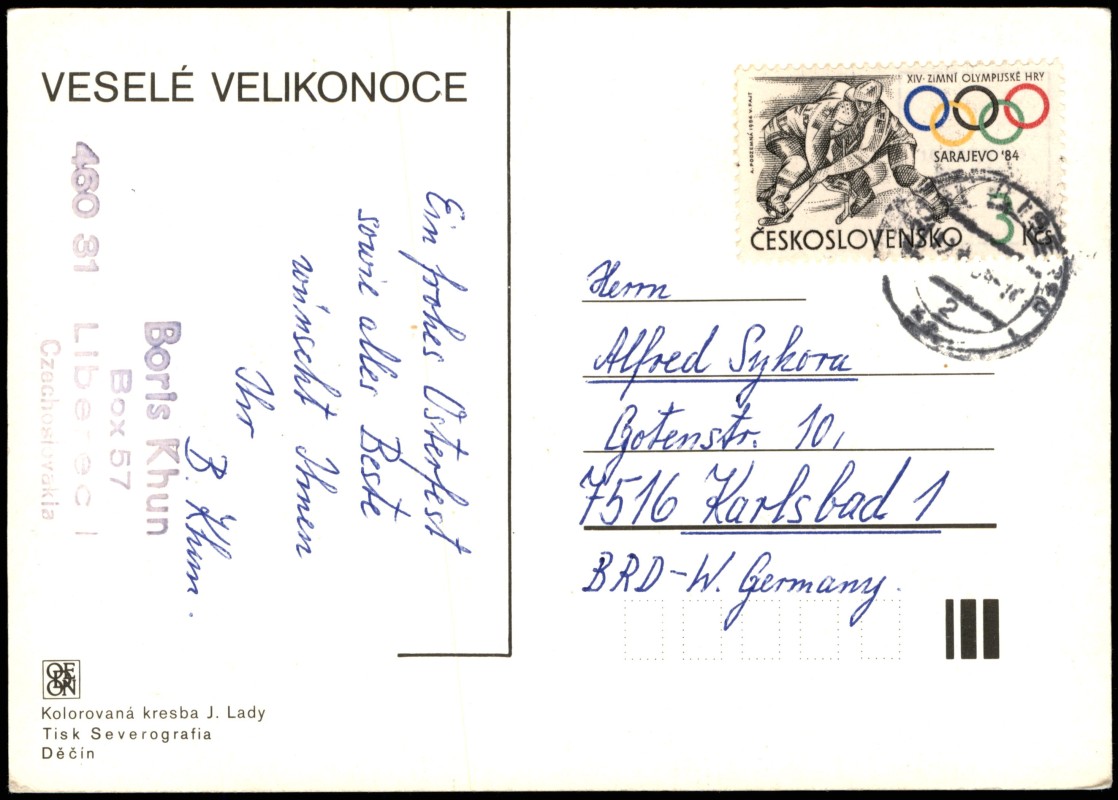 VESELÉ VELIKONOCE
460 31 Liberec 1
Boris Khun
Box 57
Czechoslovakia
Ein frohes Osterfest
sowie alles Beste
wünscht Ihnen
Ihr
B. Khun.
ODEON
Kolorovaná kresba J. Lady
Tisk Severografia
Děčín
XIV. ZIMNÍ OLYMPIJSKÉ HRY
SARAJEVO '84
A. PODZEMNÁ 1984 V. FAJT
ČESKOSLOVENSKO 3 Kčs
Herrn
Alfred Sykora
Gotenstr. 10,
7516 Karlsbad 1
BRD-W. Germany.